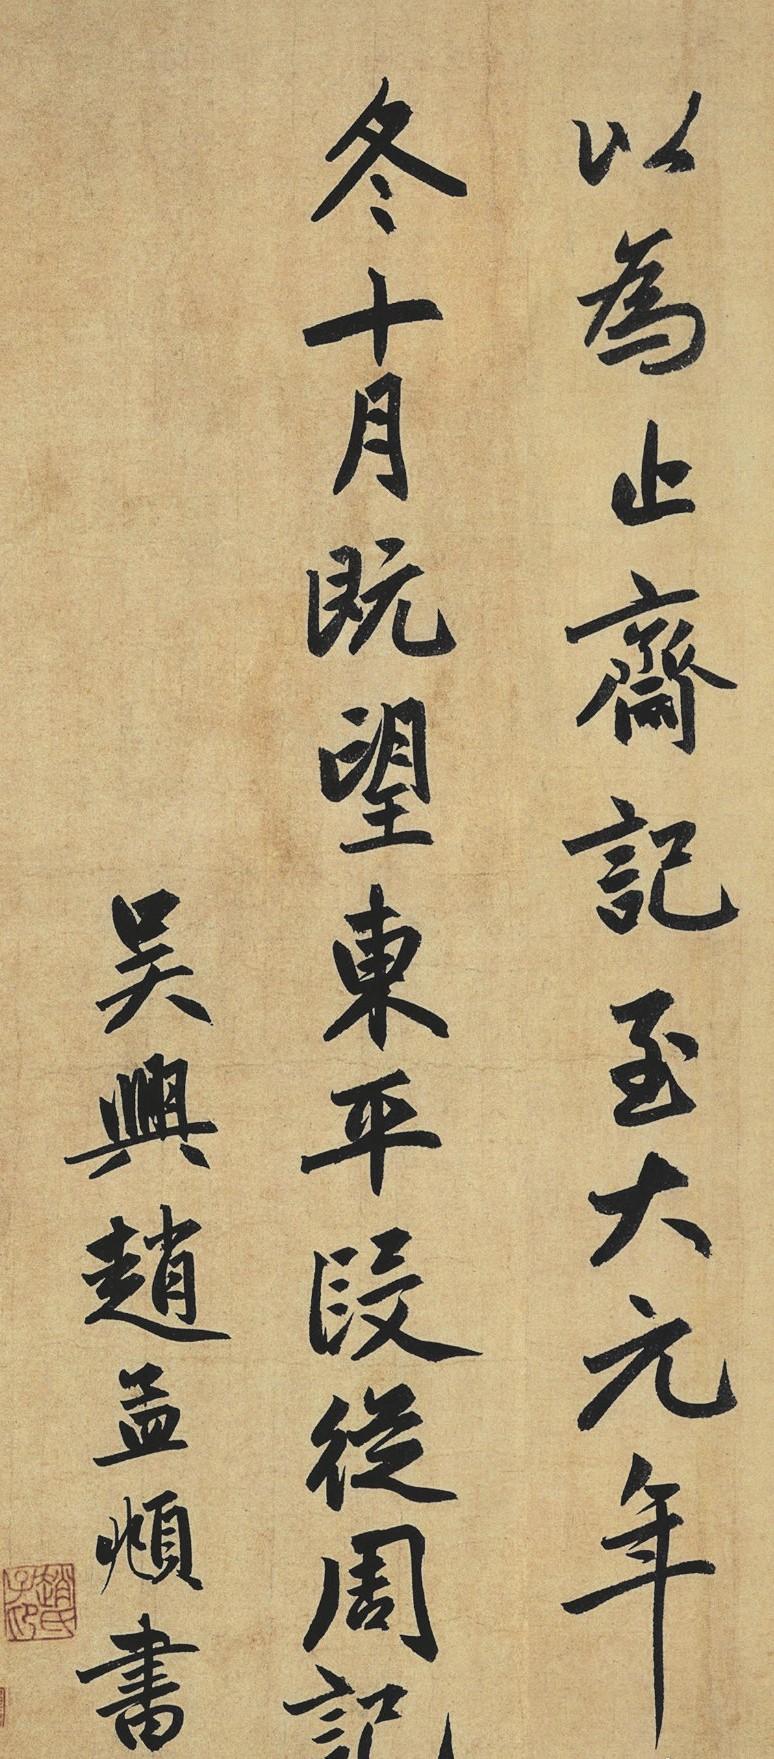 以為止齋記至大元年
冬十月既望東平段從周記
吳興趙孟頫書
趙氏子印